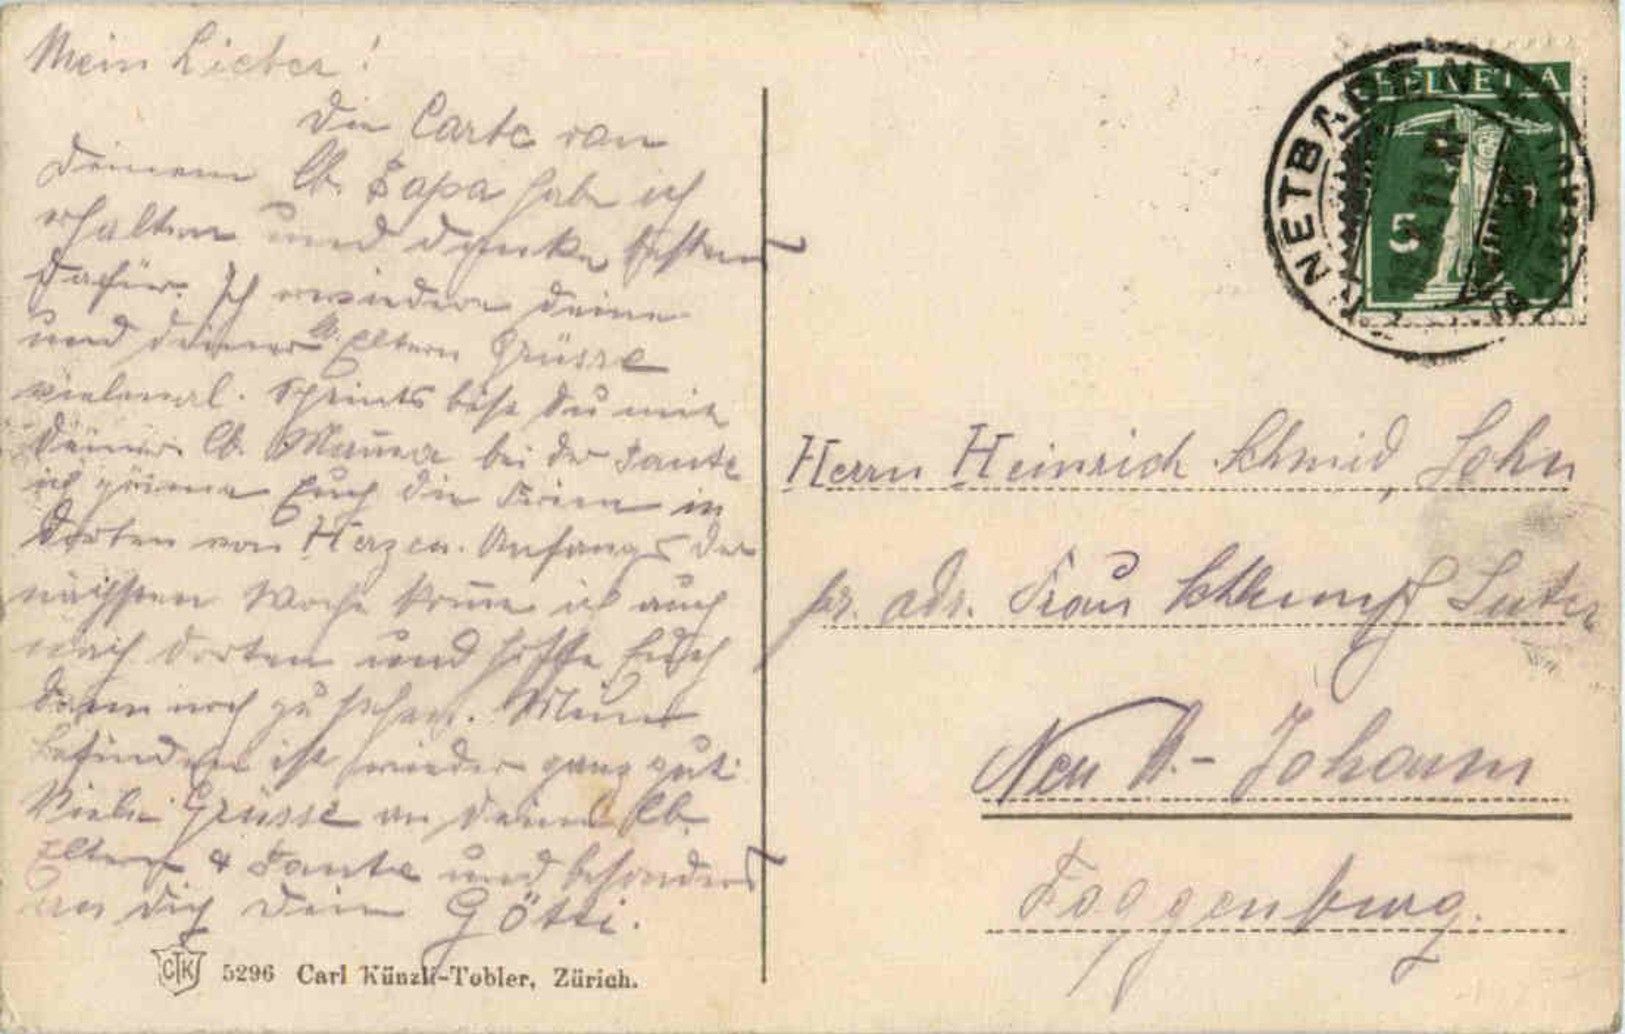 Mein Lieber!
Die Carte von
deinem lb. Papa habe ich
erhalten und danke bestens
dafür. Ich erwiedere deine
und deiner lb. Eltern Grüsse
vielmal. bist du mit
deiner lb. Mama bei der Tante
ich gönne Euch die Ferien in
dorten von Herzen. Anfangs der
nächsten Woche komme ich auch
nach dorten und hoffe Euch
dann noch zu sehen. Mein
befinden ist wieder ganz gut.
Viele Grüsse an deine lb.
Eltern & Tante und besonders
an dich dein Götti.
CTK 5296 Carl Künzli-Tobler, Zürich.
HELVETIA
5
NETBADEN
Herrn Heinrich Schmid, Sohn
pr. adr. Frau Schlumpf Suter
Neu St.-Johann
Toggenburg.